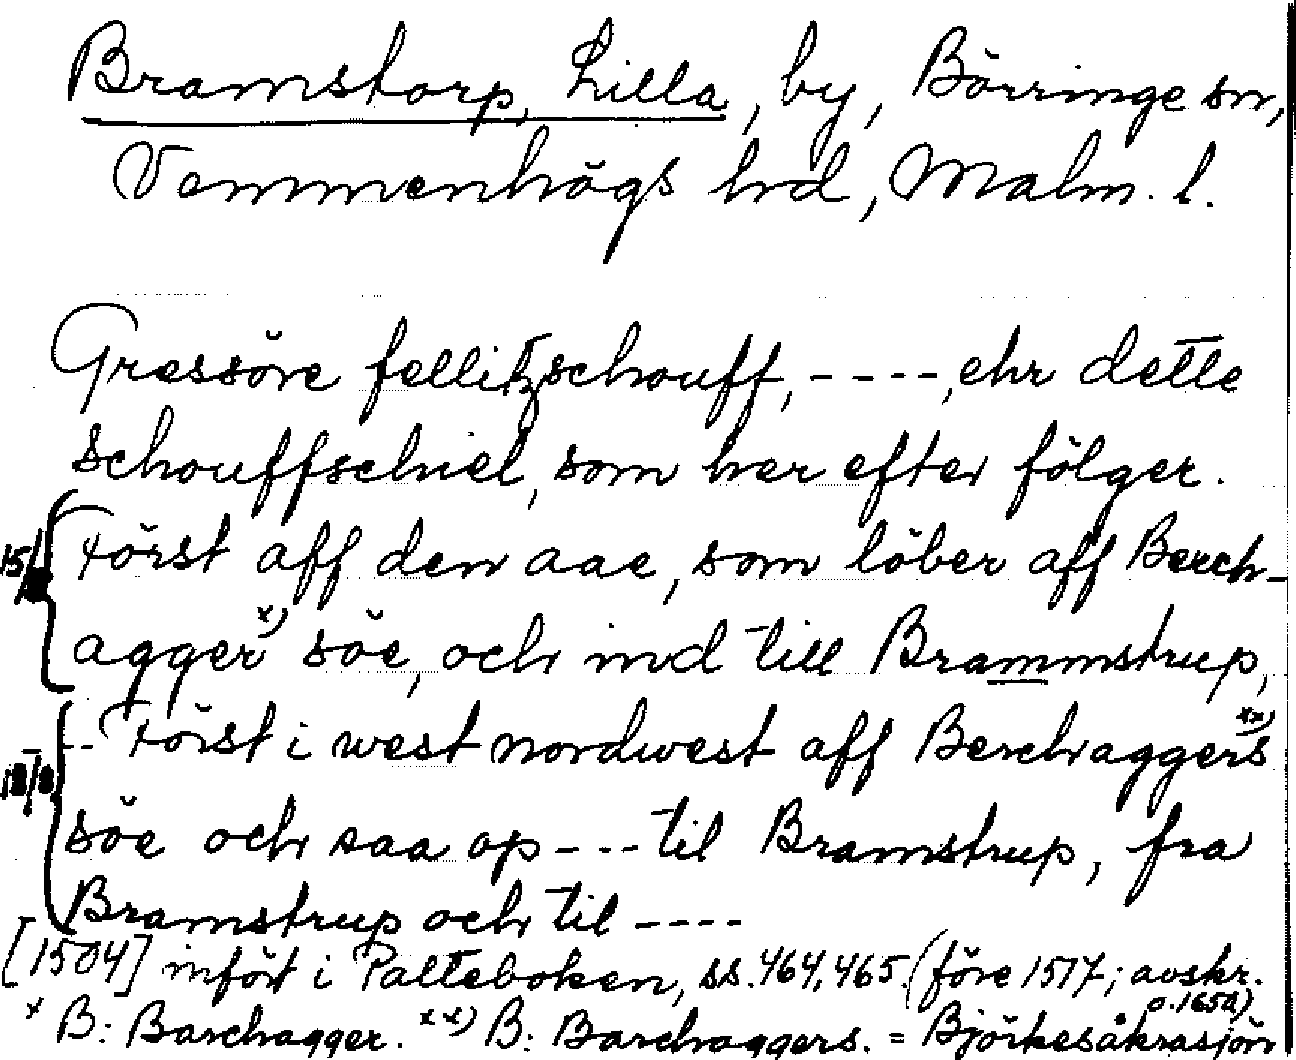 Bramstorp, Lilla, by, Börringe sn,
Vemmenhögs hrd, Malm. l.
Gressöre fellitzschouff, - - - -, ehr dette
schouffschiel, som her efter fölger.
Först aff den aae, som löber aff Berch-
agger x) söe, och ind till Brammstrup,
-- Först i west nordwest aff Berchaggers xx)
söe och saa op - - - til Bramstrup, fra
Bramstrup och til - - - -
[1504] infört i Palteboken, ss. 464, 465. (före 1517; avskr.
o. 1650)
x B: Barchagger. xx) B: Barchaggers. = Björkesåkrasjön